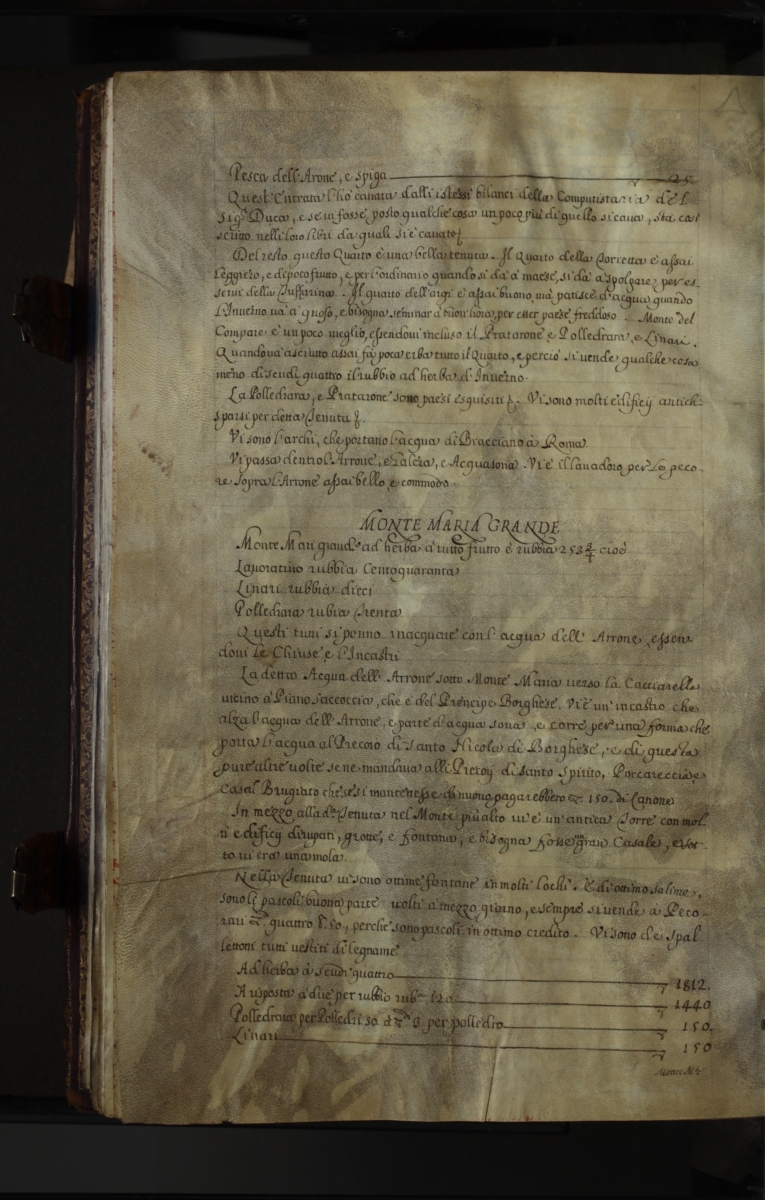 Pesca dell'Arone, e spiga 25.
Quest'Entrata l'hò cauata dalli istessi bilanci della Computistaria del
Sigr Duca, e se ui fosse posto qualche cosa un poco più di quello si caua, sta così
scritto nelli loro libri da quali si è cauato
Del resto questo Quarto è una bella tenuta. Il Quarto della Torretta è assai
Leggiero, e di poco frutto, e per l'ordinario quando si dà à maese, si dà à spolgare per es-
serui della Zuffarina. Il quarto dell'argi è assai buono, mà patisce d'acqua quando
l'Inuerno uà, e bisogna seminar à buon'hora, per esser paese freddoso. Monte del
Compare è un poco meglio, essendoui incluso il Pratarone e Polledrara, e Linari.
Quando uà asciutto assai fà poca erba tutto il Quarto, e perciò si uende qualche cosa
meno di scudi quattro il rubbio ad herba d'Inuerno.
La Polledrara, e Pratarone sono paesi esquisiti. Vi sono molti edificij antich-
sparsi per detta Tenuta
Vi sono l'archi, che portano l'acqua di Bracciano à Roma
Vi passa dentro l'Arrone, e Galera, e Acquasona. Vi è il lauadoro per le peco-
re sopra l'Arrone assai bello, e commodo.
MONTE MARIA GRANDE
Monte Mari grande ad herba à tutto frutto è rubbia 253 3/4 cioè
Lauoratiuo rubbia Centoquaranta
Linari rubbia dieci
Pollediara rubia Trenta
Questi tutti si ponno inacquare con l'acqua dell'Arrone, essen
doui le Chiuse, e l'Incastri
La detta Acqua dell'Arrone sotto Monte Maria uerso la Cacciarella
uicino à Piano saccoccia, che è del Prencipe Borghese, ui è un'incastro che
alza l'acqua dell'Arrone, e parte d'acqua sona, e corre per una forma che
porta l'acqua al Precoio di Santo Nicola di Borghese, e di questa
pure altre uolte se ne mandaua alli Precoij di Santo Spirito, Porcareccia e
Casal Brugiato che se si mantenesse di nuouo pagarebbero 150. di Canone
In mezzo alla da Tenuta nel Monte più alto ui è un'antica Torre con mol
ti edificij dirupati, grotte, e fontana, e bisogna fosse gran Casale, e sot-
to ui era una mola
Nella Tenuta ui sono ottime fontane in molti lochi. È di ottimo salime,
sono li pascoli buona parte uolti à mezzo giorno, e sempre si uende à Peco-
rari quattro 50, perche sono pascoli in ottimo credito. Vi sono de Spal
lettoni tutti uestiti di legname
Ad herba à scudi quattro 1812.
A risposta à due per rubbio rub. 120 1440
Polledrara per Polledri 50 à 3 per polledro 150.
Linari 150
Monte Ma